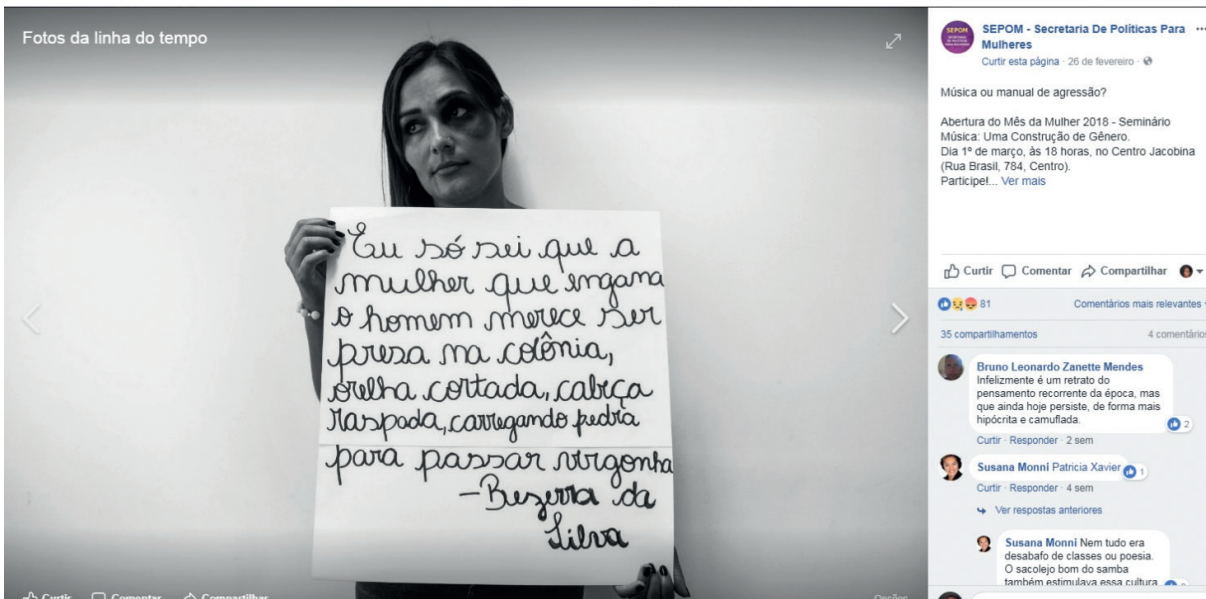 Fotos da linha do tempo
Eu só sei que a
mulher que engana
o homem merece ser
presa na colônia,
orelha cortada, cabeça
raspada, carregando pedra
para passar vergonha
-Bezerra da
Silva
Curtir Comentar Compartilhar
Opções
SEPOM - Secretaria De Políticas Para ...
Mulheres
Curtir esta página · 26 de fevereiro ·
Música ou manual de agressão?
Abertura do Mês da Mulher 2018 - Seminário
Música: Uma Construção de Gênero.
Dia 1º de março, às 18 horas, no Centro Jacobina
(Rua Brasil, 784, Centro).
Participe!... Ver mais
Curtir Comentar Compartilhar
81 Comentários mais relevantes
35 compartilhamentos 4 comentários
Bruno Leonardo Zanette Mendes
Infelizmente é um retrato do
pensamento recorrente da época, mas
que ainda hoje persiste, de forma mais
hipócrita e camuflada.
2
Curtir · Responder · 2 sem
Susana Monni Patricia Xavier 1
Curtir · Responder · 4 sem
Ver respostas anteriores
Susana Monni Nem tudo era
desabafo de classes ou poesia.
O sacolejo bom do samba
também estimulava essa cultura